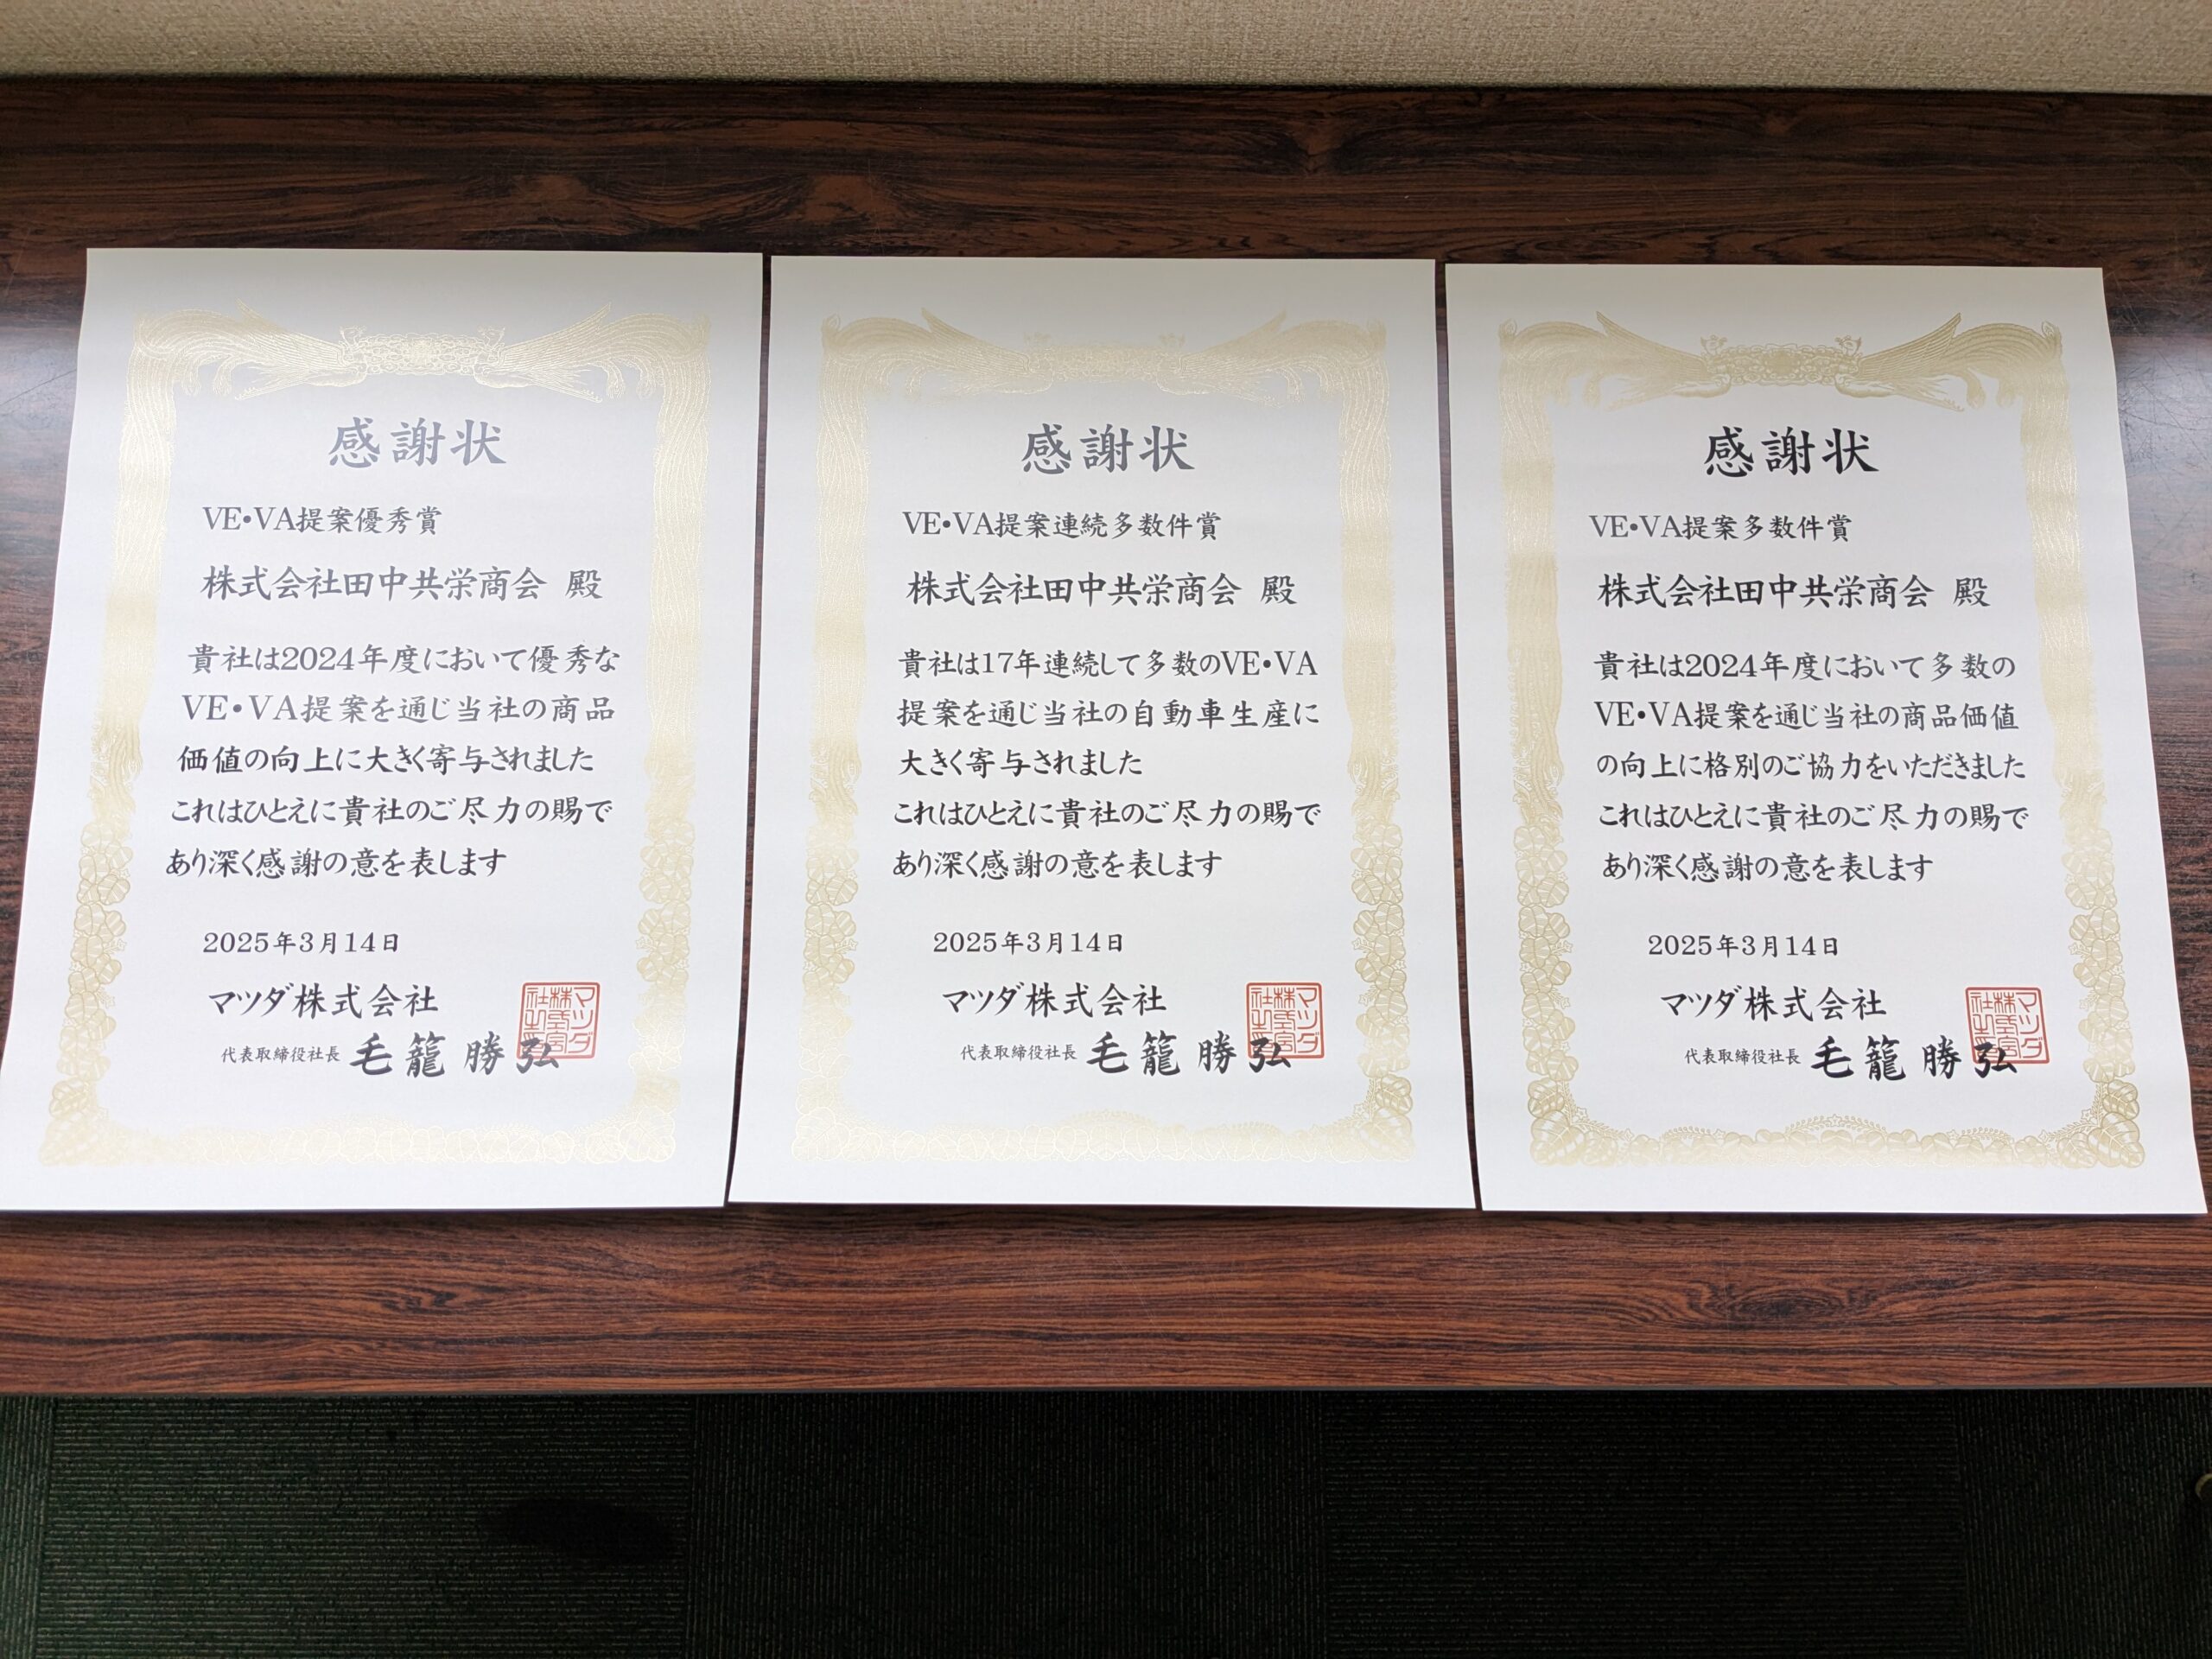 感謝状
VE•VA提案優秀賞
株式会社田中共栄商会 殿
貴社は2024年度において優秀な
VE•VA提案を通じ当社の商品
価値の向上に大きく寄与されました
これはひとえに貴社のご尽力の賜で
あり深く感謝の意を表します
2025年3月14日
マツダ株式会社
代表取締役社長 毛籠勝弘
感謝状
VE•VA提案連続多数件賞
株式会社田中共栄商会 殿
貴社は17年連続して多数のVE•VA
提案を通じ当社の自動車生産に
大きく寄与されました
これはひとえに貴社のご尽力の賜で
あり深く感謝の意を表します
2025年3月14日
マツダ株式会社
代表取締役社長 毛籠勝弘
感謝状
VE•VA提案多数件賞
株式会社田中共栄商会 殿
貴社は2024年度において多数の
VE•VA提案を通じ当社の商品価値
の向上に格別のご協力をいただきました
これはひとえに貴社のご尽力の賜で
あり深く感謝の意を表します
2025年3月14日
マツダ株式会社
代表取締役社長 毛籠勝弘